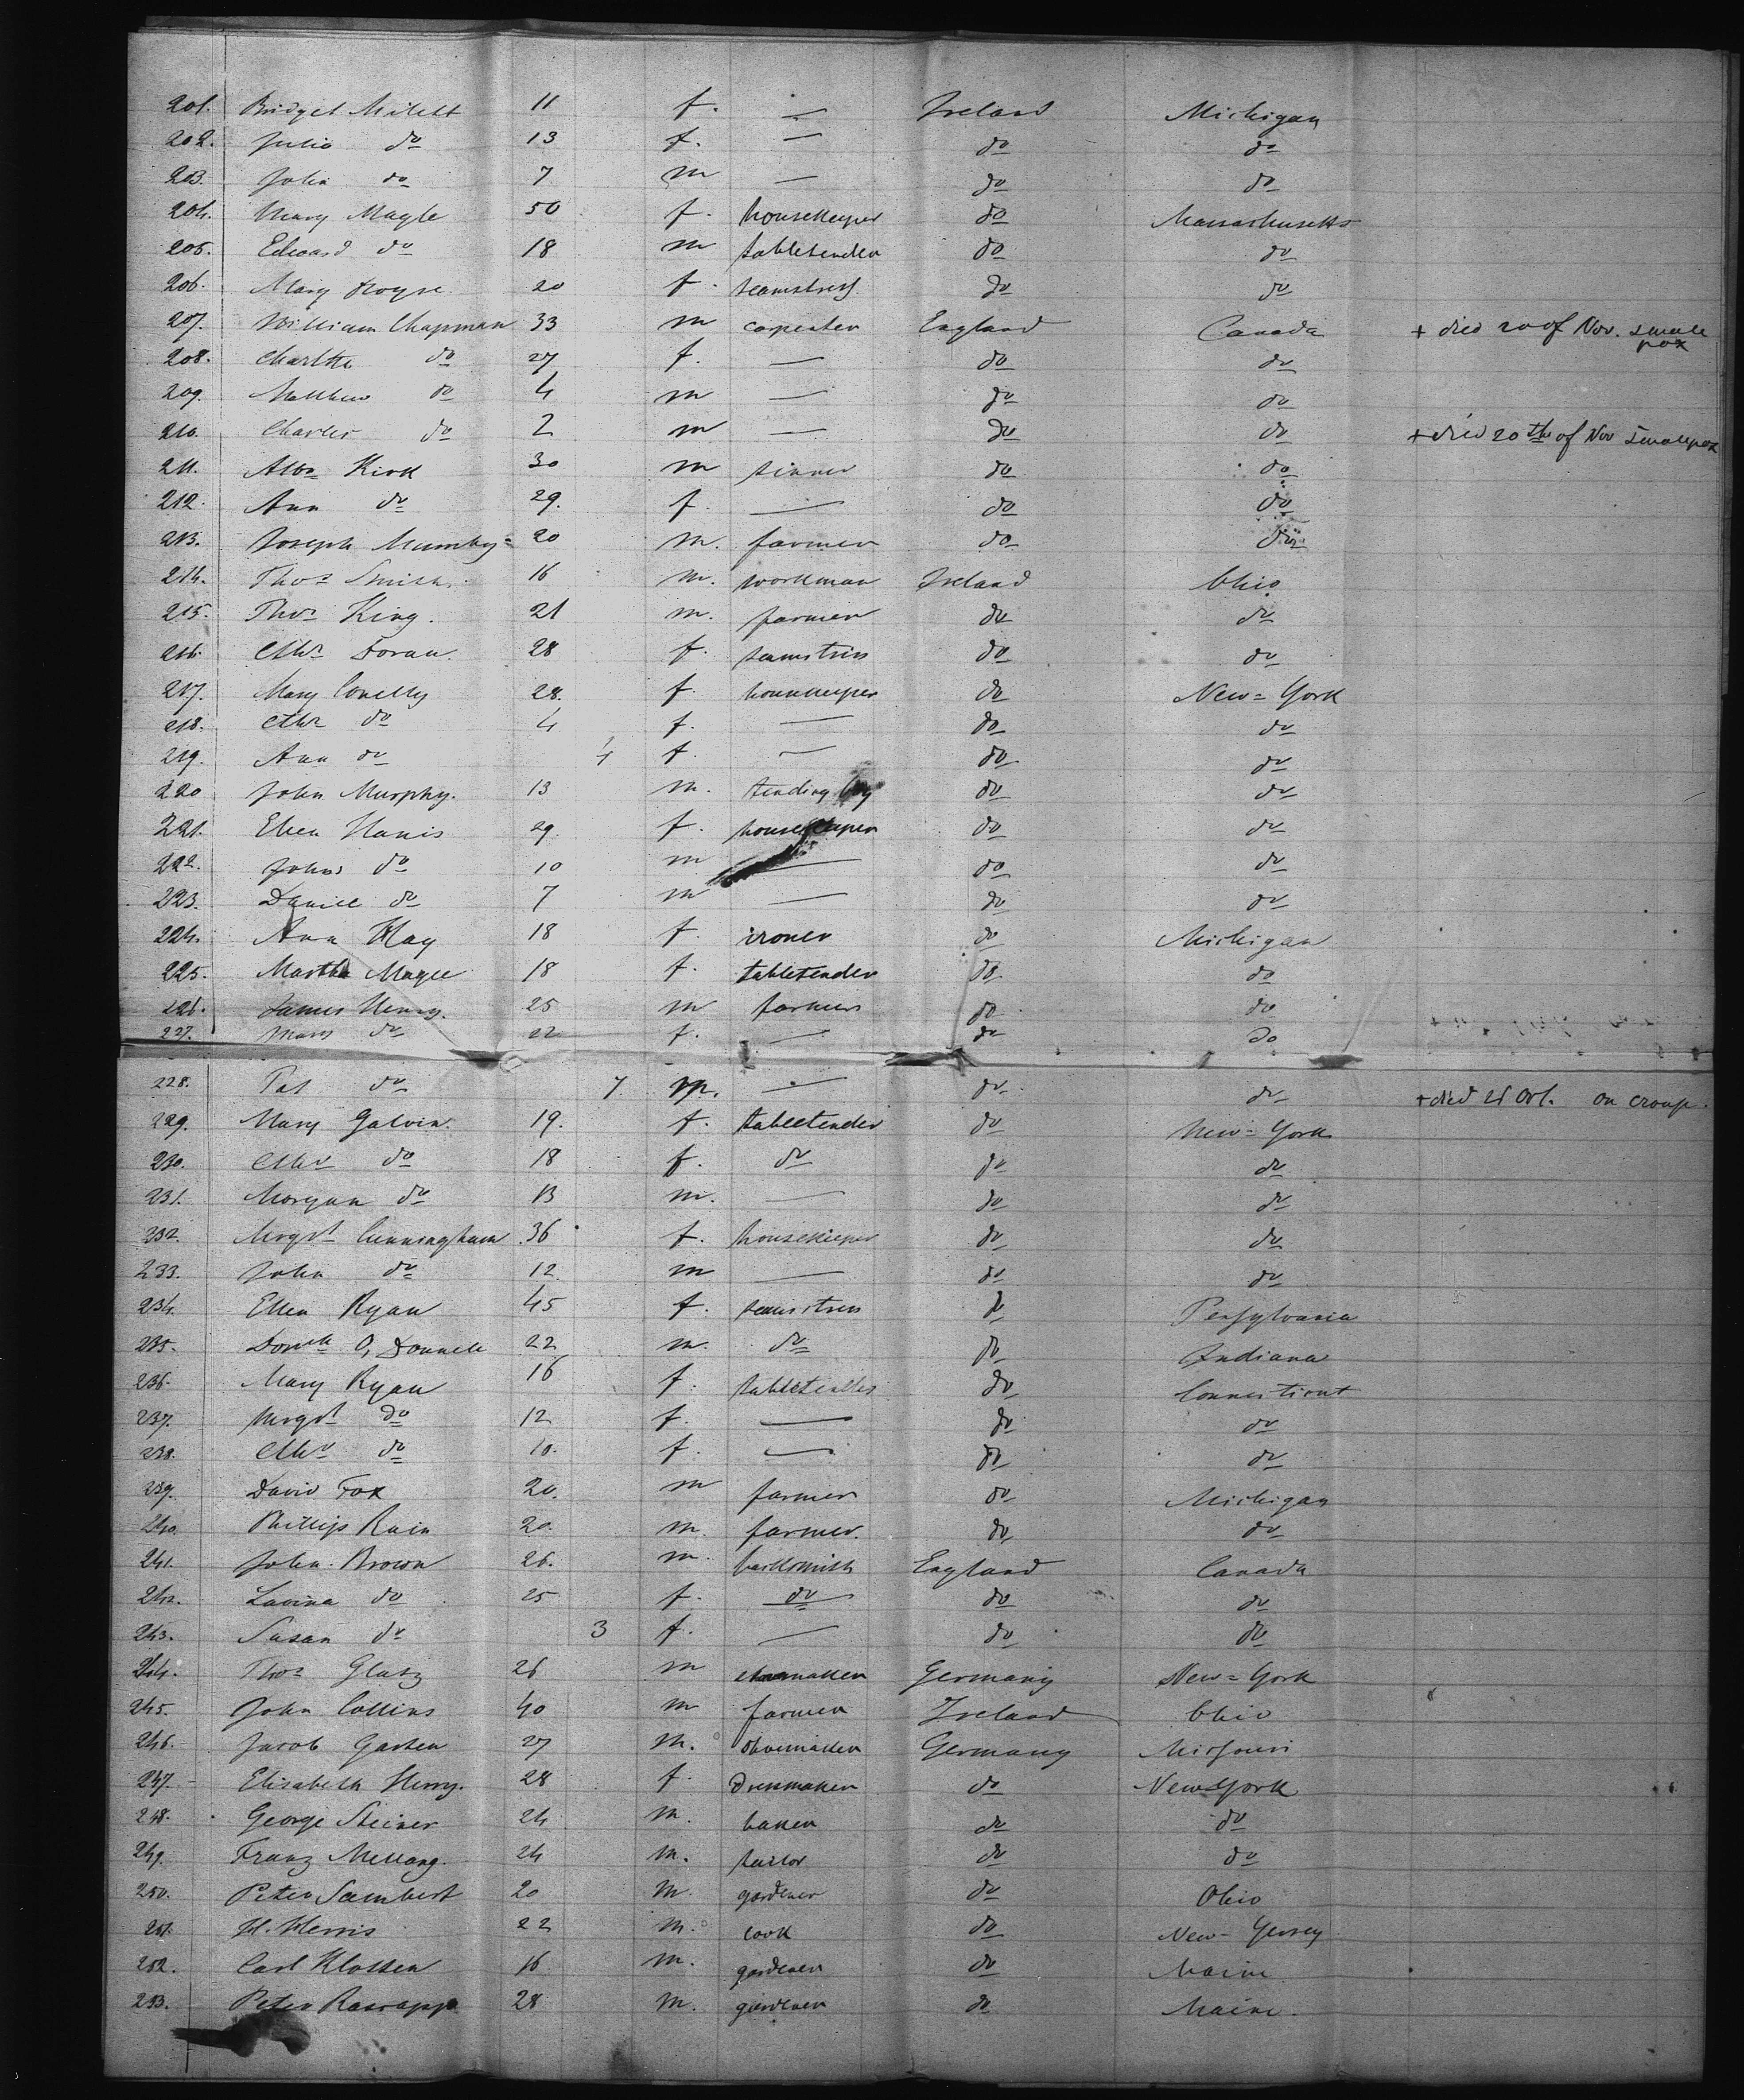 201. Bridget Milett 11 f. — Ireland Michigan
202. Julia do 13 f. — do do
203. John do 7 m — do do
204. Mary Magle 50 f. housekeeper do Massachusetts
205. Edward do 18 m tabletender do do
206. Mary Royse 20 f. seamstress do do
207. William Chapman 33 m carpenter England Canada + died 20 of Nov. small pox
208. Charltte do 27 f. — do do
209. Matthew do 4 m — do do
210. Charles do 2 m — do do + died 20th of Nov smallpox
211. Kirk 30 m tinner do do
212. Ann do 29. f. — do do
213. Joseph Mumby 20 m. farmer do do
214. Thos Smith 16 m. workman Ireland Ohio
215. Thos King. 21 m. farmer do do
216. Cthr Doran. 28 f. seamstress do do
217. Mary Conelly 28. f. housekeeper do New=York
218. Cthr do 4 f. — do do
219. Ann do 4 f. — do do
220 John Murphy. 13 m. tending boy do do
221. Ellen Hanis 29 f. housekeeper do do
222. John do 10 m — do do
223. Daniel do 7 m — do do
224. Ann Hay 18 f. ironer do Michigan
225. Martha Magee 18 f. tabletender do do
226. James Henry. 25 m farmer do do
227. Mary do 22 f. — do do
228. Pat do 7 m. — do do + died 21 Oct. on croup.
229. Mary Galvin. 19. f. tabletender do New=York
230. Cthr do 18 f. do do do
231. Morgan do 13 m. — do do
232. Mrgrt Cunningham 36 f. housekeeper do do
233. John do 12 m — do do
234. Ellen Ryan 45 f. seamstress do Pensylvania
235. O, Donnell 22 m. do do Indiana
236. Mary Ryan 16 f. tabletender do Connecticut
237. Mrgrt do 12 f. — do do
238. Cthr do 10. f. — do do
239. David Fox 20. m farmer do Michigan
240. Phillip Rain 20. m. farmer. do do
241. John Brown 26. m. England Canada
242. Lavina do 25 f. do do do
243. Susan do 3 f. — do do
244. Thos Glatz 26 m Germany New=York
245. John Collins 40 m farmer Ireland Ohio
246. Jacob Garken 27 m. shoemaker Germany Missouri
247. Elisabeth Henry. 28 f. dressmaker do New York
248. George Steiner 24 m. baker do do
249. Franz Mellang. 24 m. tailor do do
250. Peter Sambert 20 m. gardener do Ohio
251. H. Herris 22 m. cook do New-Yersey
252. Carl Klossen 16 m. gardener do Maine
253. Peter 28 m. gardener do Maine.